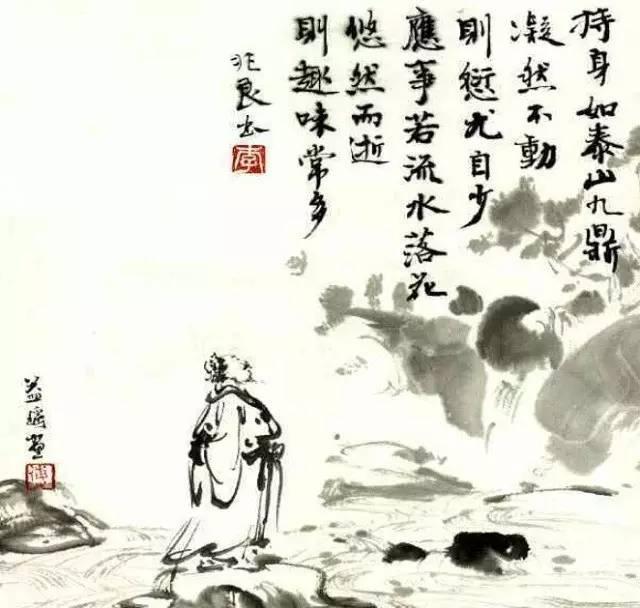 持身如泰山九鼎
凝然不動
則愆尤自少
應事若流水落花
悠然而逝
則趣味常多
兆良书
李
益瑤畫